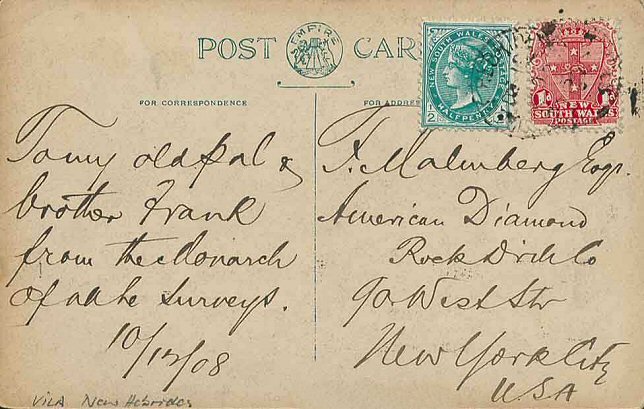 POST CARD
EMPIRE
NEW SOUTH WALES
HALFPENNY
1/2
1d
NEW
SOUTH WALES
POSTAGE
FOR CORRESPONDENCE
FOR ADDRESS
To my old pal &
brother Frank
from the Monarch
of all he surveys.
10/12/08
F. Malmberg Esqr.
American Diamond
Rock Drill Co
90 West Str
New York City
USA
Vila New Hebrides